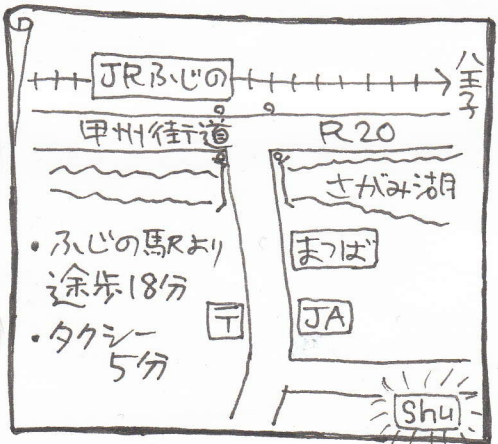 JRふじの
八王子
甲州街道 R20
さがみ湖
・ふじの駅より
途歩18分
・タクシー
5分
まつば
〒
JA
Shu